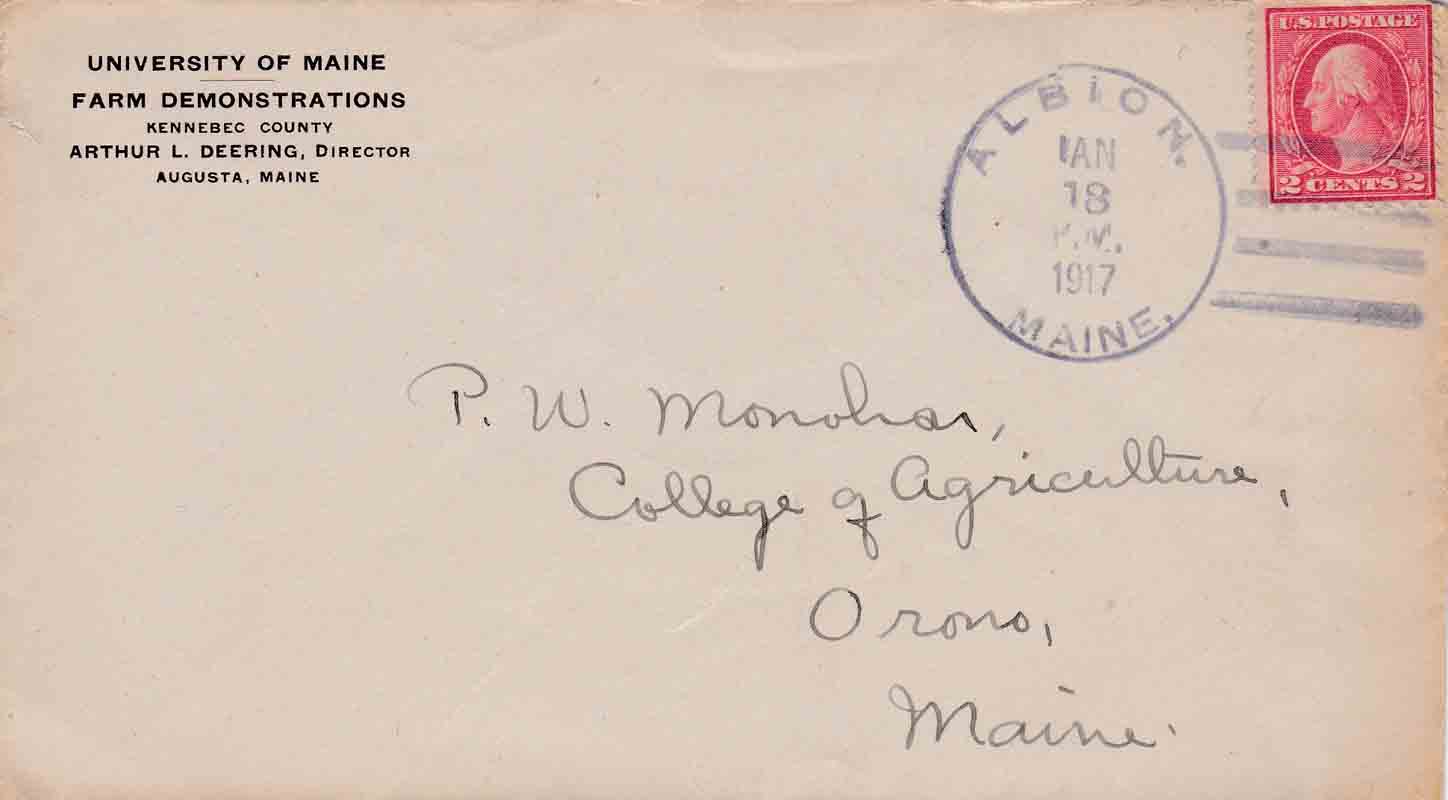 UNIVERSITY OF MAINE
FARM DEMONSTRATIONS
KENNEBEC COUNTY
ARTHUR L. DEERING, DIRECTOR
AUGUSTA, MAINE
U.S. POSTAGE
2 CENTS 2
ALBION.
JAN
18
P.M.
1917
MAINE.
P. W. Monohas,
College of Agriculture,
Orono,
Maine.